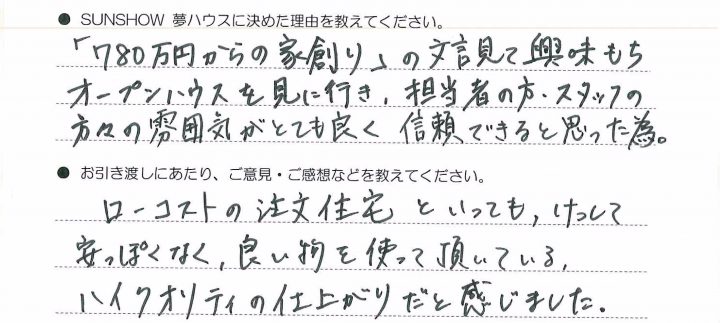 ● SUNSHOW 夢ハウスに決めた理由を教えてください。
「780万円からの家創り」の文言見て興味もち
オープンハウスを見に行き、担当者の方・スタッフの
方々の雰囲気がとても良く 信頼できると思った為。
● お引き渡しにあたり、ご意見・ご感想などを教えてください。
ローコストの注文住宅 といっても、けっして
安っぽくなく、良い物を使って頂いている、
ハイクオリティの仕上がりだと感じました。